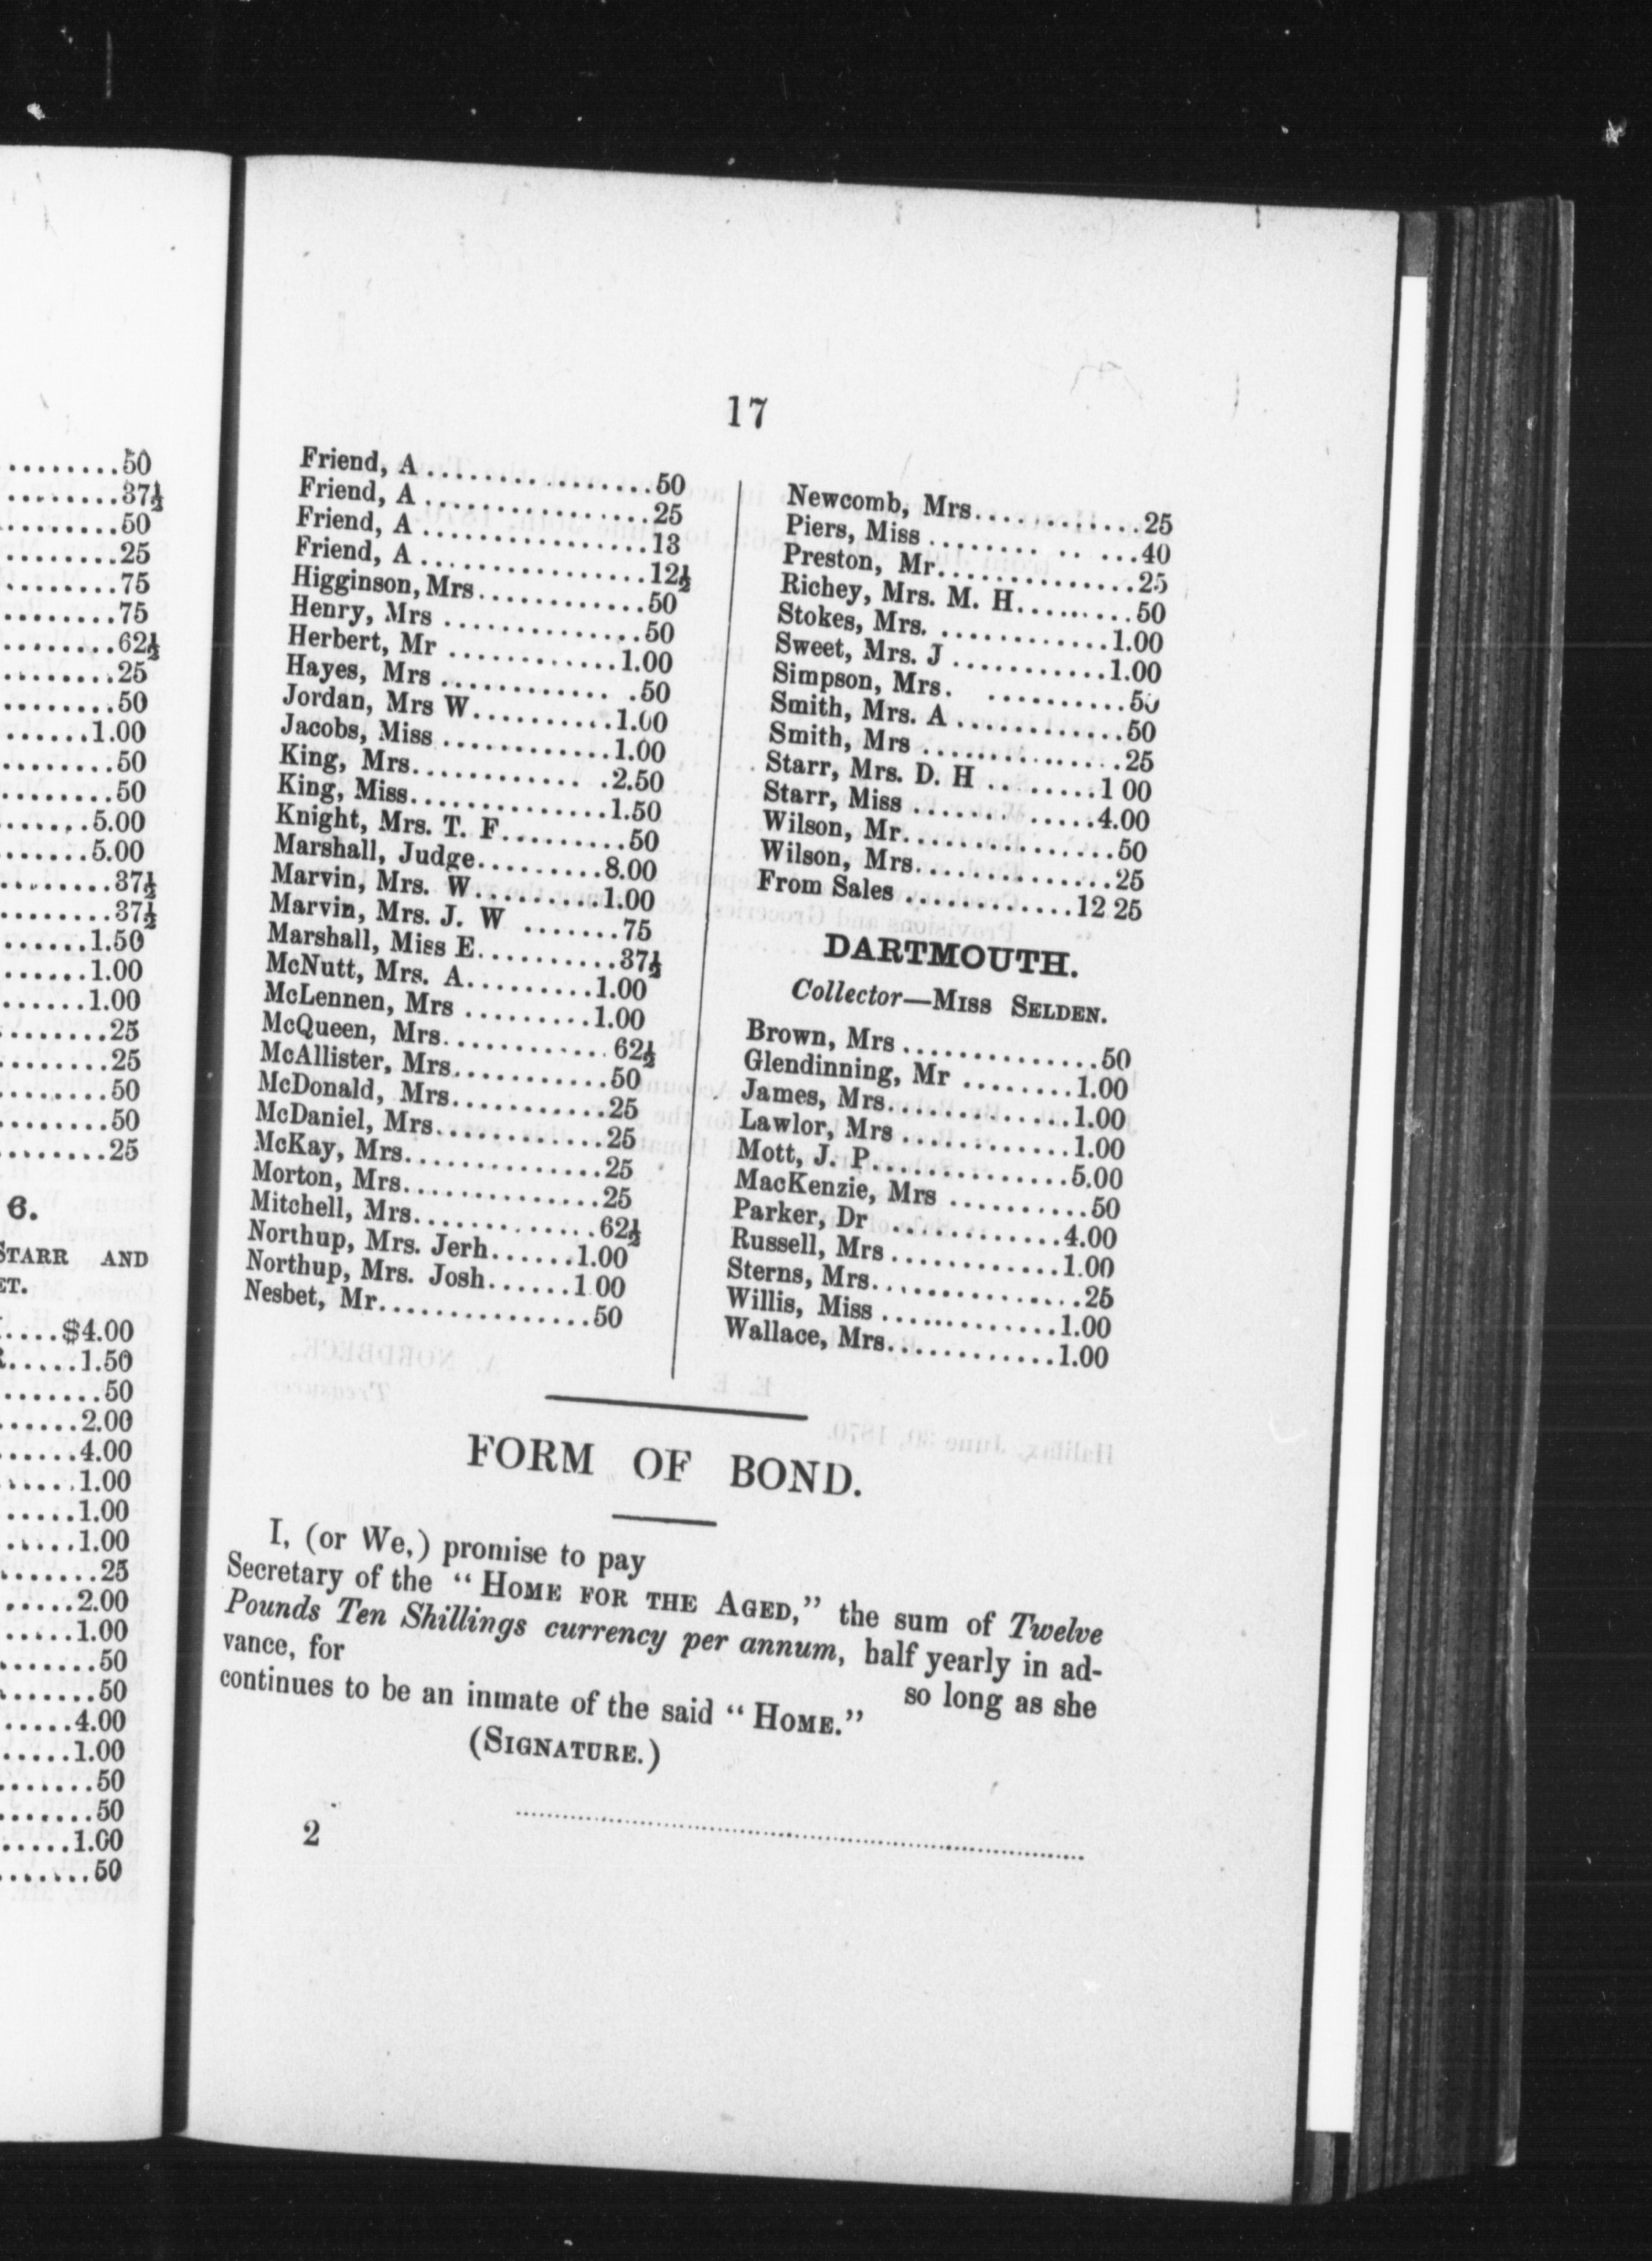 ........50
........37½
........50
........25
........75
........75
........62½
........25
........50
......1.00
........50
........50
......5.00
......5.00
........37½
........37½
......1.50
......1.00
......1.00
........25
........25
........50
........50
........25
6.
STARR AND
ET.
....$4.00
.....1.50
.......50
......2.00
......4.00
......1.00
.....1.00
.....1.00
.......25
.....2.00
.....1.00
.......50
.......50
.....4.00
.....1.00
.......50
.......50
.....1.00
.......50
17
Friend, A ................50
Friend, A ................25
Friend, A ................13
Friend, A ................12½
Higginson, Mrs............50
Henry, Mrs ..............50
Herbert, Mr ............1.00
Hayes, Mrs ............ .50
Jordan, Mrs W..........1.00
Jacobs, Miss ............1.00
King, Mrs............. .2.50
King, Miss..............1.50
Knight, Mrs. T. F.........50
Marshall, Judge.........8.00
Marvin, Mrs. W.........1.00
Marvin, Mrs. J. W .......75
Marshall, Miss E..........37½
McNutt, Mrs. A.........1.00
McLennen, Mrs .........1.00
McQueen, Mrs............62½
McAllister, Mrs...........50
McDonald, Mrs...........25
McDaniel, Mrs............25
McKay, Mrs..............25
Morton, Mrs..............25
Mitchell, Mrs.............62½
Northup, Mrs. Jerh......1.00
Northup, Mrs. Josh......1.00
Nesbet, Mr...............50
Newcomb, Mrs............25
Piers, Miss ........ .. ...40
Preston, Mr..............25
Richey, Mrs. M. H.........50
Stokes, Mrs. ............1.00
Sweet, Mrs. J ...........1.00
Simpson, Mrs. ..........50
Smith, Mrs. A ............50
Smith, Mrs ...............25
Starr, Mrs. D. H .. .....1 00
Starr, Miss ....... .....4.00
Wilson, Mr...............50
Wilson, Mrs..............25
From Sales ............12 25
DARTMOUTH.
Collector—MISS SELDEN.
Brown, Mrs ..............50
Glendinning, Mr ........1.00
James, Mrs.............1.00
Lawlor, Mrs ............1.00
Mott, J. P..............5.00
MacKenzie, Mrs ..........50
Parker, Dr .. ...........4.00
Russell, Mrs ............1.00
Sterns, Mrs...............25
Willis, Miss .............1.00
Wallace, Mrs............1.00
FORM OF BOND.
I, (or We,) promise to pay
Secretary of the “ HOME FOR THE AGED,” the sum of Twelve
Pounds Ten Shillings currency per annum, half yearly in ad-
vance, for so long as she
continues to be an inmate of the said “ HOME.”
(SIGNATURE.)
2